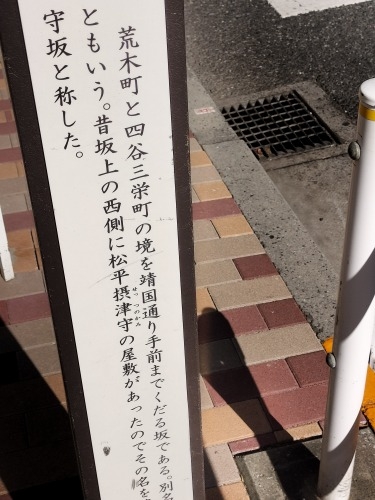 荒木町と四谷三栄町の境を靖国通り手前までくだる坂である。別名
ともいう。昔坂上の西側に松平摂津守の屋敷があったのでその名を
せっつのかみ
守坂と称した。